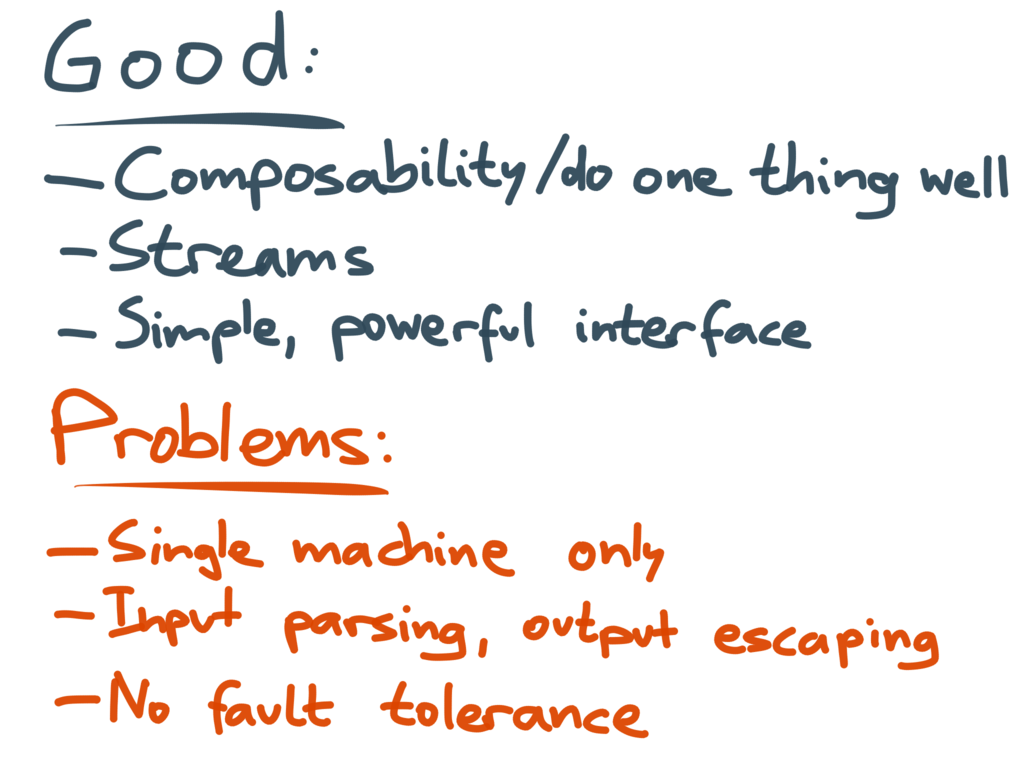 Good:
– Composability/do one thing well
– Streams
– Simple, powerful interface
Problems:
– Single machine only
– Input parsing, output escaping
– No fault tolerance